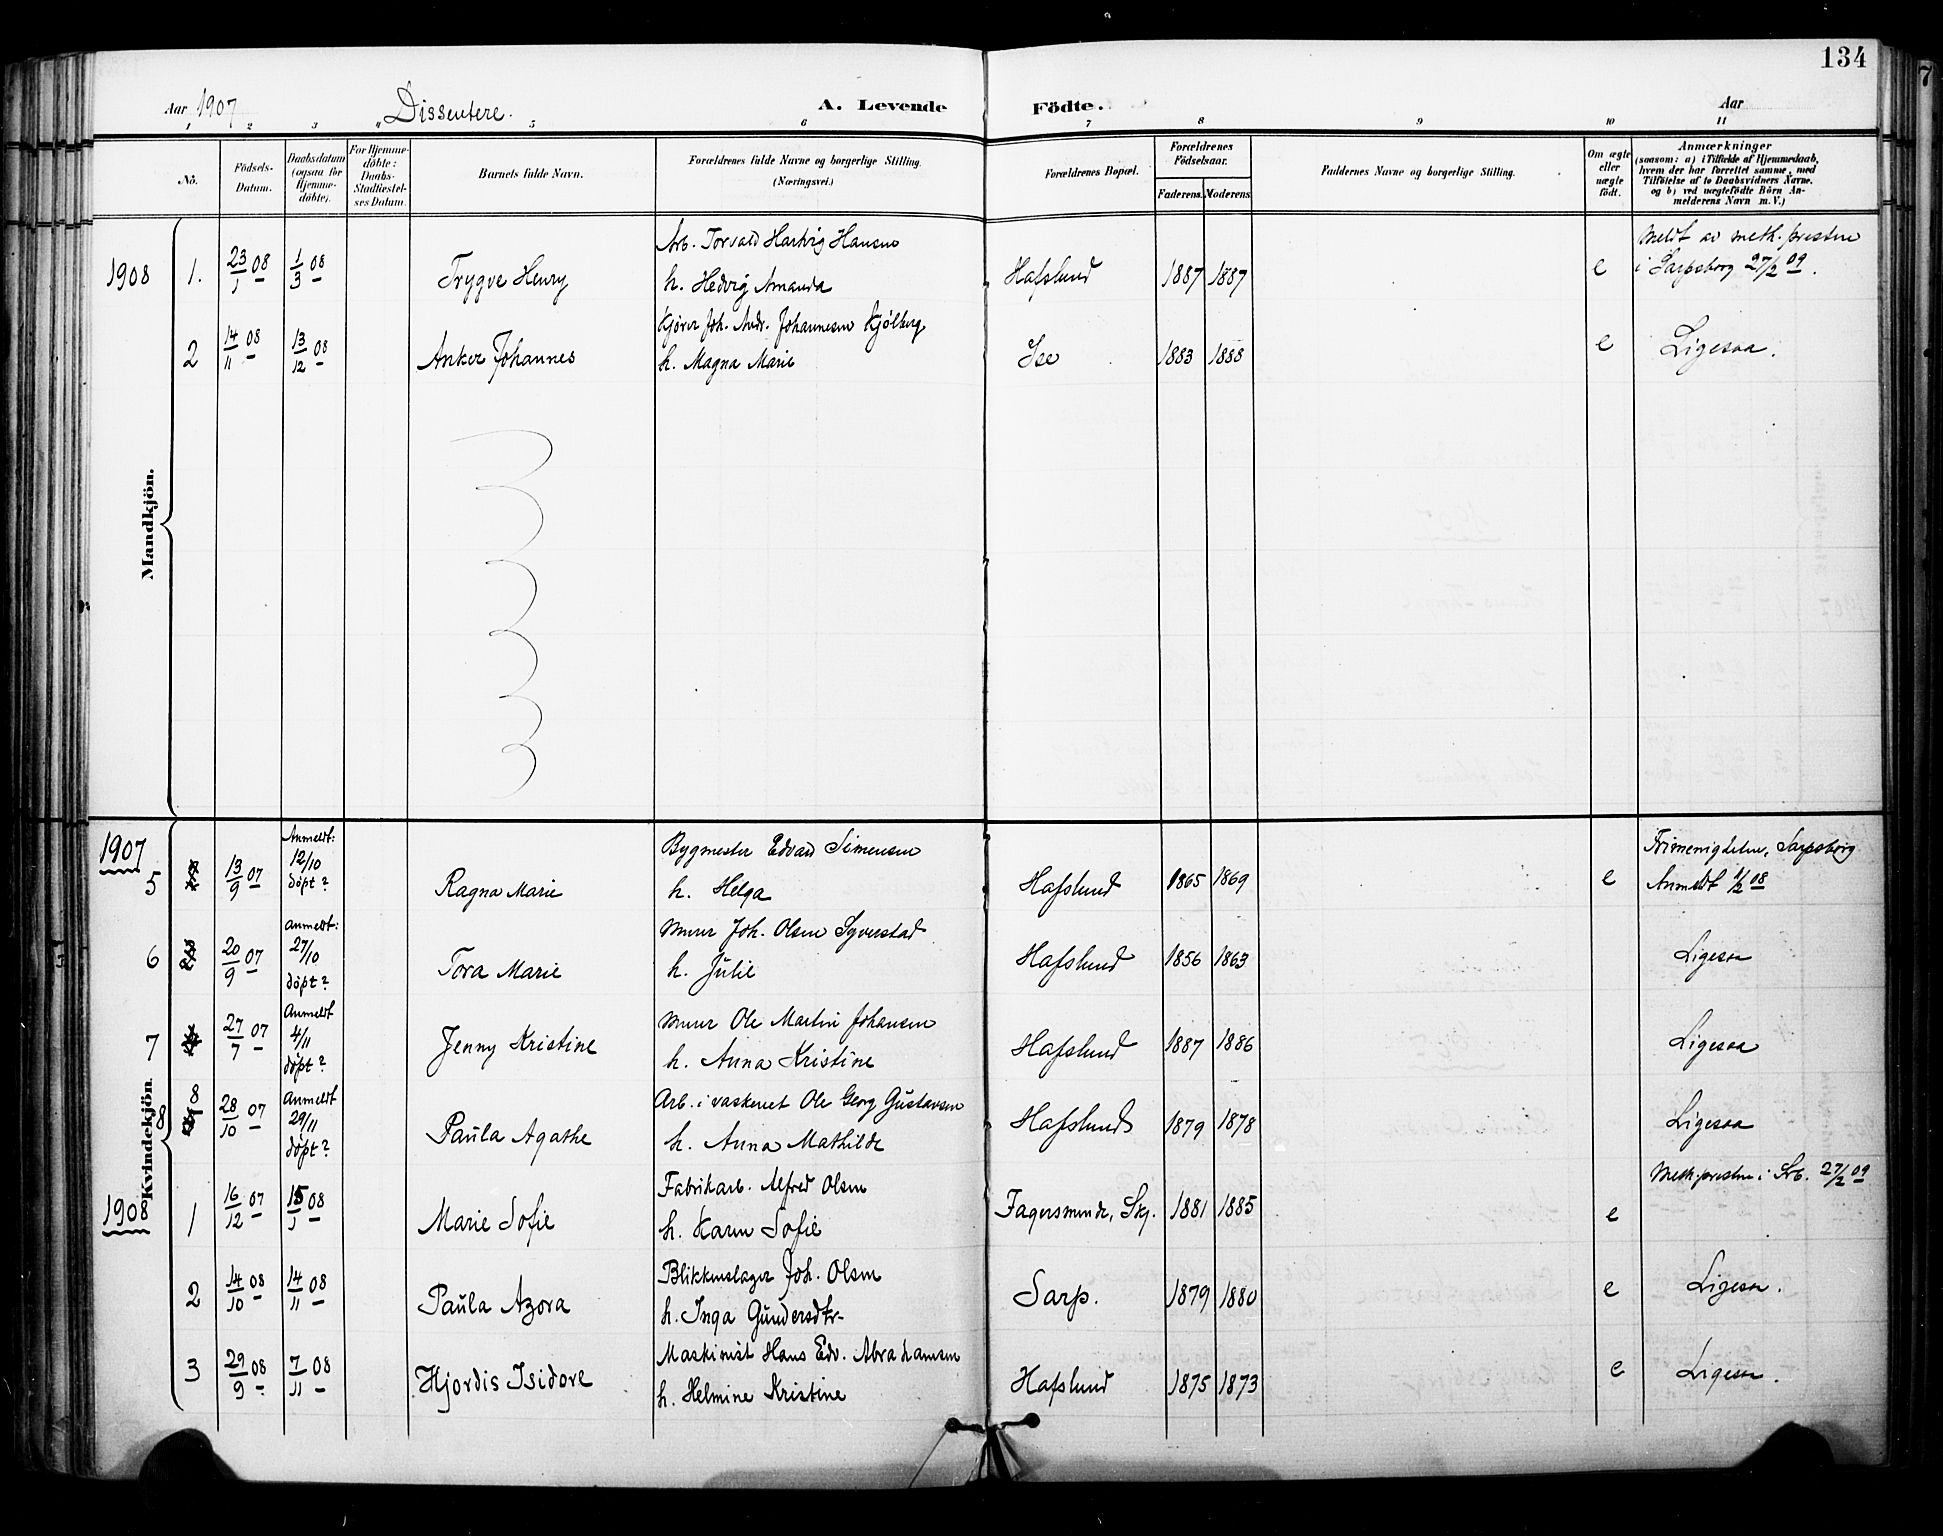 134
Aar 1907 Dissentere. A. Levende Födte. Aar
1 2 3 4 5 6 7 8 9 10 11
No.
Födsels-
Datum.
Daabsdatum
(ogsaa for
Hjemme-
döbte).
For Hjemme-
döbte:
Daabs-
Stadfæstel-
ses Datum.
Barnets fulde Navn.
Forældrenes fulde Navne og borgerlige Stilling.
(Næringsvei.)
Forældrenes Bopæl.
Forældrenes
Födselsaar.
Faderens. Moderens.
Faddernes Navne og borgerlige Stilling.
Om ægte
eller
uægte
födt.
Anmærkninger
(saasom: a) i Tilfælde af Hjemmedaab,
hvem der har forrettet samme, med
Tilföielse af to Daabsvidners Navne,
og b) ved uægtefödte Börn An-
melderens Navn m. V.)
Mandkjön.
Arb. Torvald Hartvig Hansen Meldt av meth. presten
1908 1. 23/1 08 1/3 08 Trygve Henry h. Hedvig Amanda Hafslund 1887 1887 e i Sarpsborg 27/2 09.
Kjörer Joh. Andr. Johannesen Kjölberg
2 14/11 08 13/12 08 Anker Johannes h. Magna Marie Ise 1883 1888 e Ligesaa.
Kvindekjön.
1907 Anmeldt: Bygmester Edvard Simensen Frimenigheten, Sarpsborg
5 13/9 07 12/10 döpt? Ragna Marie h. Helga Hafslund 1865 1869 e Anmeldt 1/2 08
Anmeldt: Murer Joh. Olsen Syverstad
6 20/9 07 27/10 döpt? Tora Marie h. Julie Hafslund 1856 1863 Ligesaa
Anmeldt Murer Ole Martin Johansen
7 27/7 07 4/11 döpt? Jenny Kristine h. Anna Kristine Hafslund 1887 1886 Ligesaa
Anmeldt Arb. i vaskeriet Ole Georg Gustavsen
8 28/10 07 29/11 döpt? Paula Agathe h. Anna Mathilde Hafslund 1879 1878 Ligesaa
Fabrikarb. Alfred Olsen Meth. presten i Srb. 27/2 09
1908 1 16/12 07 15/1 08 Marie Sofie h. Karen Sofie Fagersmunde, Skj. 1881 1885 e
Blikkenslager Joh. Olsen
2 14/10 08 14/11 08 Paula Azora h. Inga Gundersdtr- Sarp. 1879 1880 e Ligesaa.
Maskinist Hans Edv. Abrahamsen
3 29/9 08 7/11 08 Hjördis Isidore h. Helmine Kristine Hafslund 1875 1873 e Ligesaa.